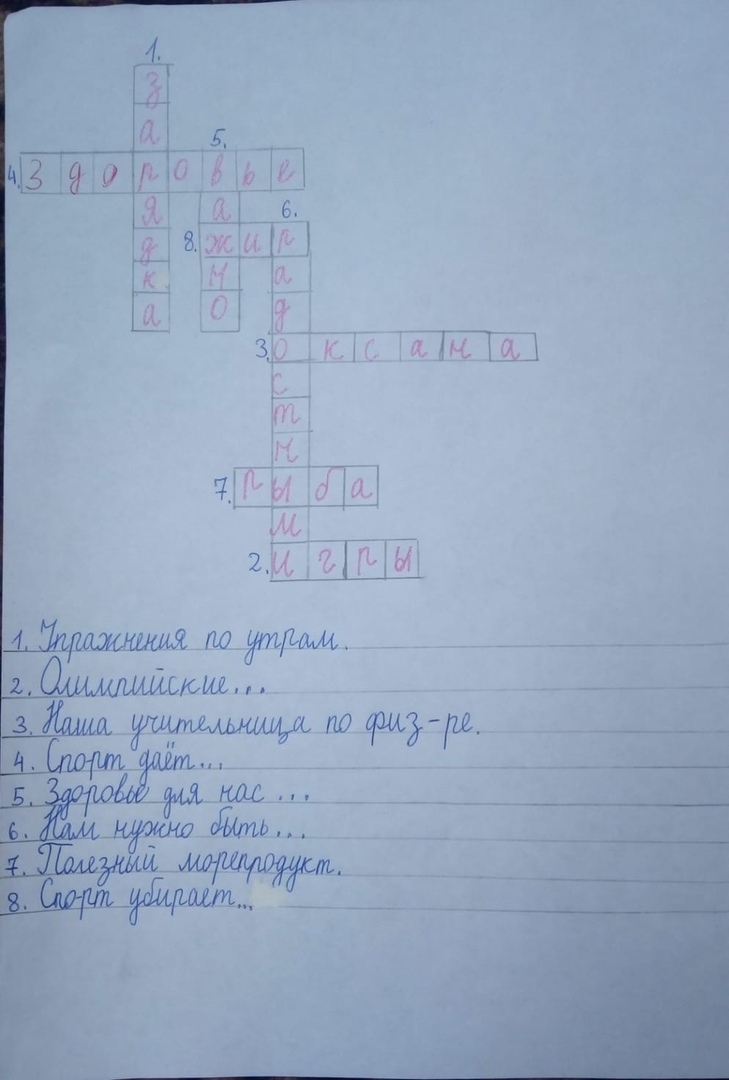 1.
з
а
5.
4. З д о р о в ь е
я а 6.
д 8. ж и р
к н а
а о д
3. о к с а н а
с
т
н
7. р ы б а
м
2. и г р ы
1. Упражнения по утрам.
2. Олимпийские...
3. Наша учительница по физ-ре.
4. Спорт даёт...
5. Здоровье для нас ...
6. Нам нужно быть...
7. Полезный морепродукт.
8. Спорт убирает...